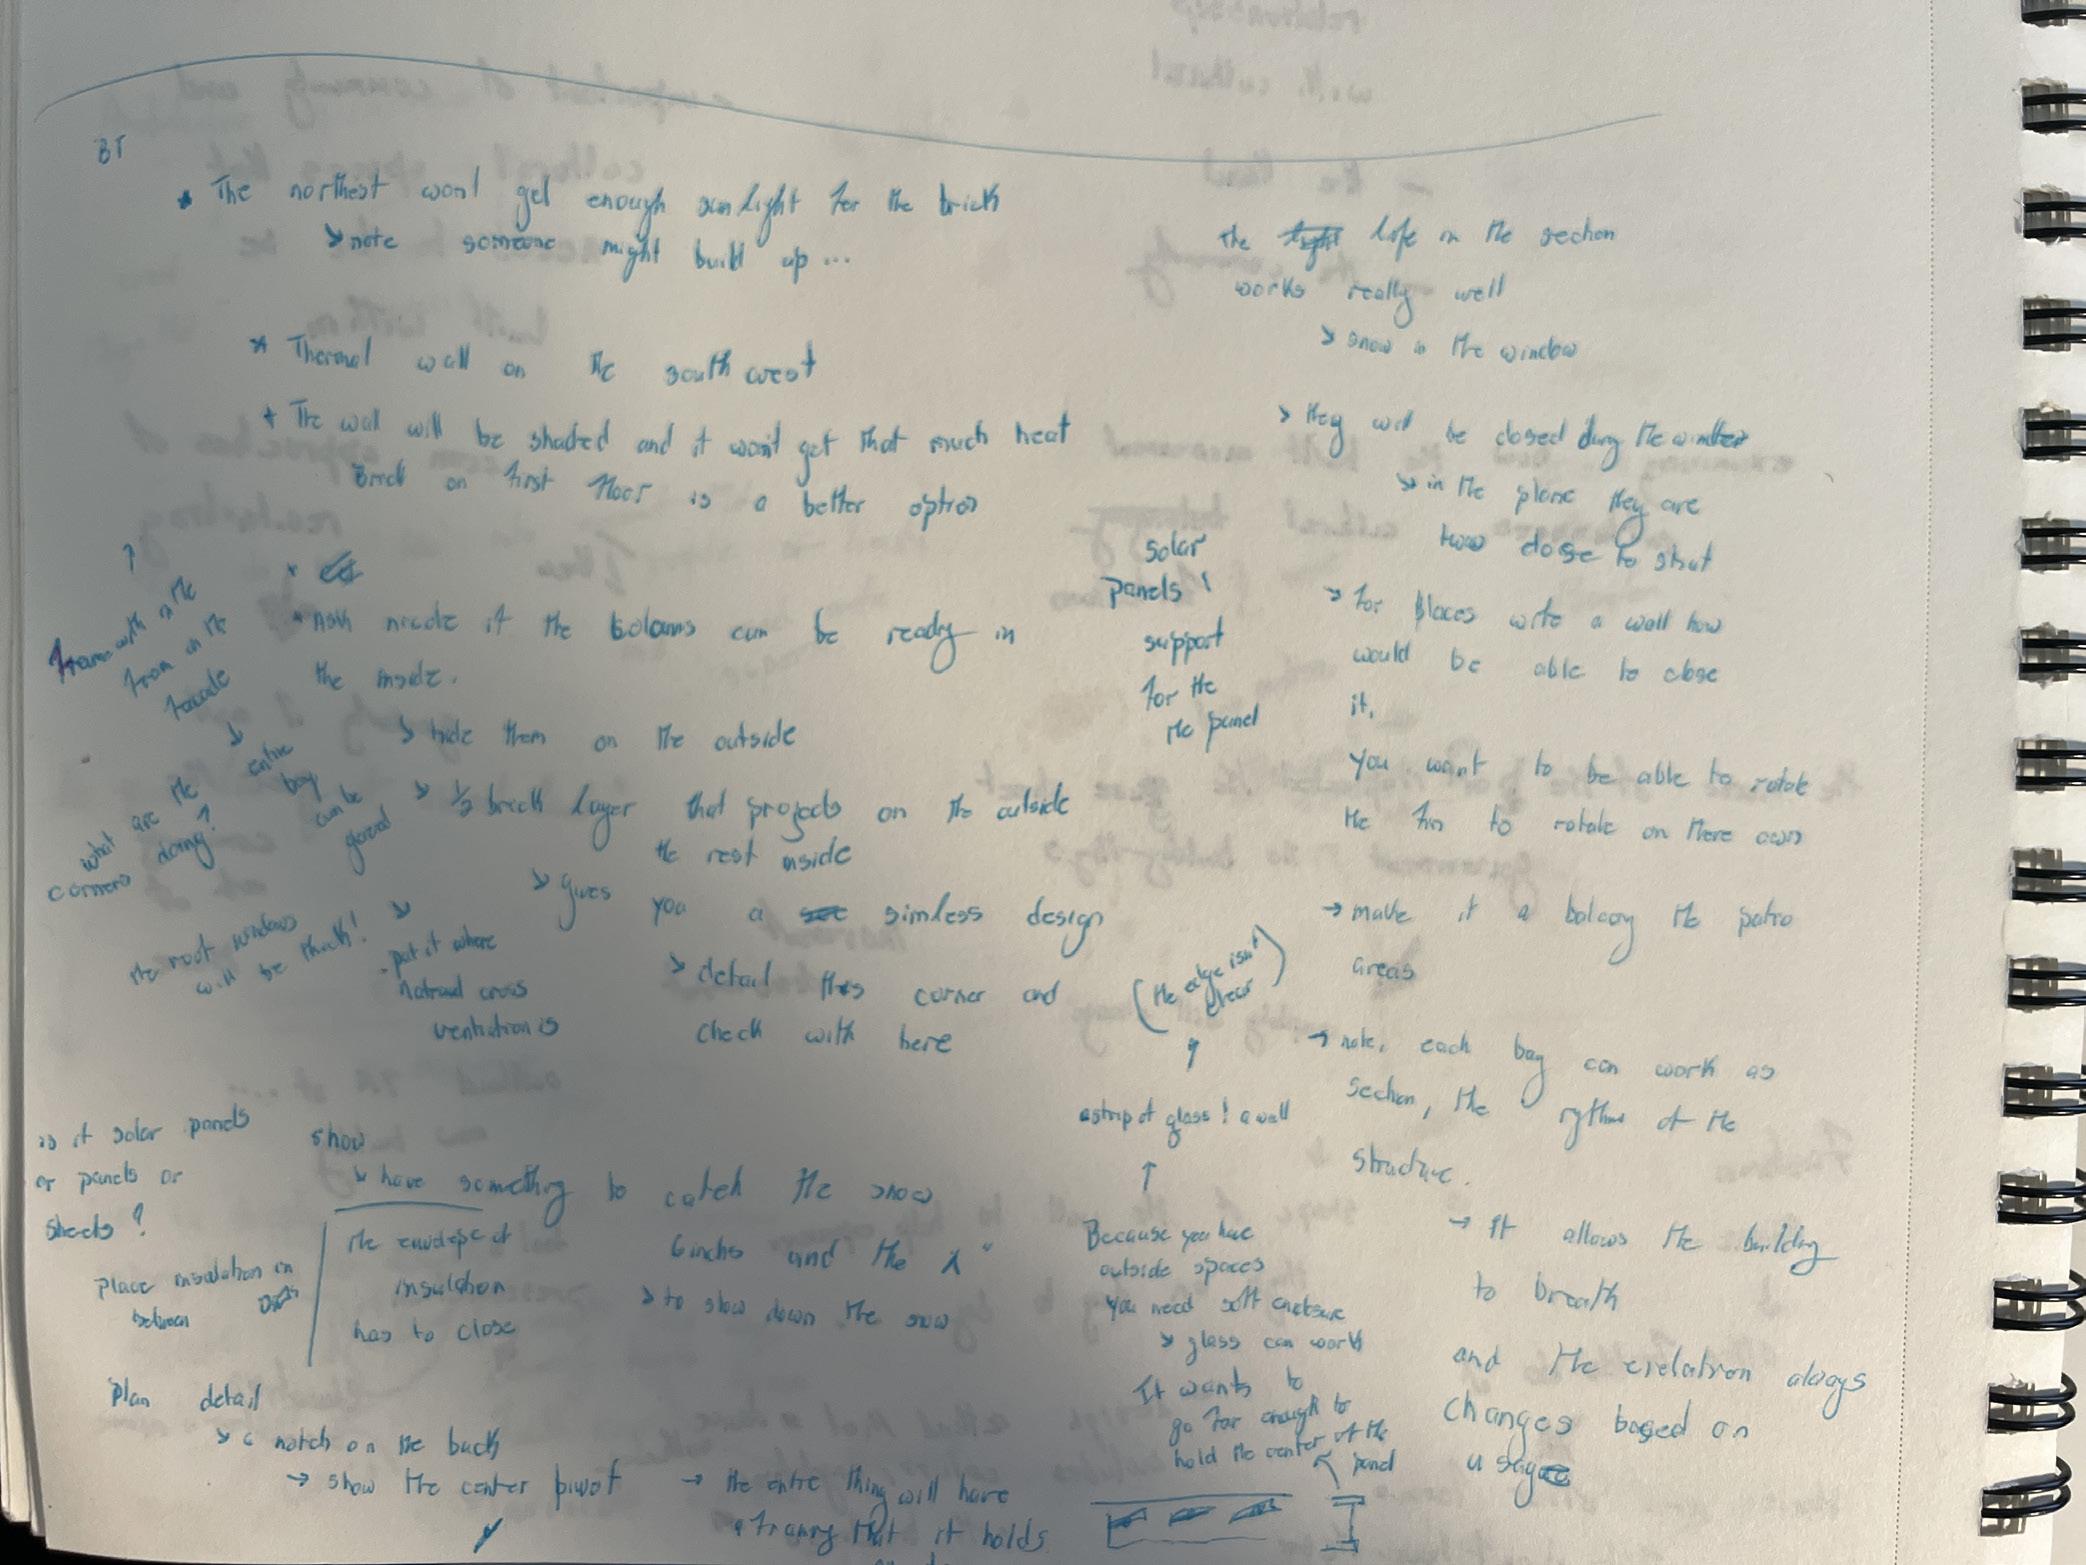 BT
* The northest wont get enough sunlight for the brick
↘ note someone might build up ...
* Thermal wall on the south west
* The wall will be shaded and it won't get that much heat
Brick on first floor is a better option
*
* Ask nicole if the colams can be ready in
the inside.
↘ hide them on the outside
↘ 1/2 brick layer that projects on the outside
the rest inside
↘ gives you a simless design
↘ detail this corner and
check with here
(the edge isn't
clear)
↑
in the
from on the
facade
↘ entire
bay
can be
glazed
what are the
corners doing?
the root windows
will be thick!
↘
- put it where
natural cross
ventilation is
is it solar panels
or panels or
sheets?
Place insulation in
between
show
↘ have something to catch the snow
the envelope of
insulation
has to close
6 inches and the
↘ to slow down the snow
Plan detail
↘ a notch on the back
→ show the center pivot
→ the entire thing will have
a framy that it holds
solar
panels!
support
for the
the panel
a strip of glass! a wall
↑
Because you have
outside spaces
You need soft enclosure
↘ glass can work
It wants to
go far enough to
hold the center of the
panel
The life in the section
works really well
↘ snow in the window
↘ they will be closed durng the winter
↘ in the plane they are
two close to shut
↘ for places write a wall how
would be able to close
it.
You want to be able to rotate
the fin to rotate on there own
→ make it a balcony the patio
areas
→ note, each bay can work as
section, the rythm of the
structure.
→ It allows the building
to breath
and the always
changes based on
usage